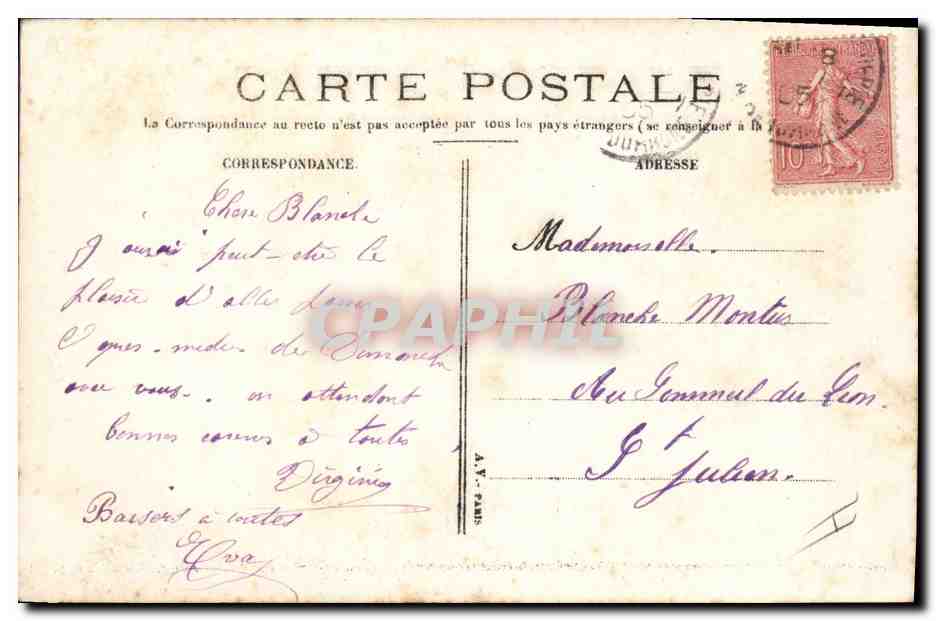 CARTE POSTALE
La Correspondance au recto n'est pas acceptée par tous les pays étrangers (se renseigner à la
CORRESPONDANCE
Chere Blanche
J aurai peut-etre le
plaisir d' alle passer
l' apres-medi de Dimanch
avec vous. en attendant
bonnes caresses à toutes
Virginie
Baisers à toutes
Eva
ADRESSE
Mademoiselle.
Blanche Montus
Au du Lion.
St Julien.
A. V. - PARIS
10
CPAPHIL